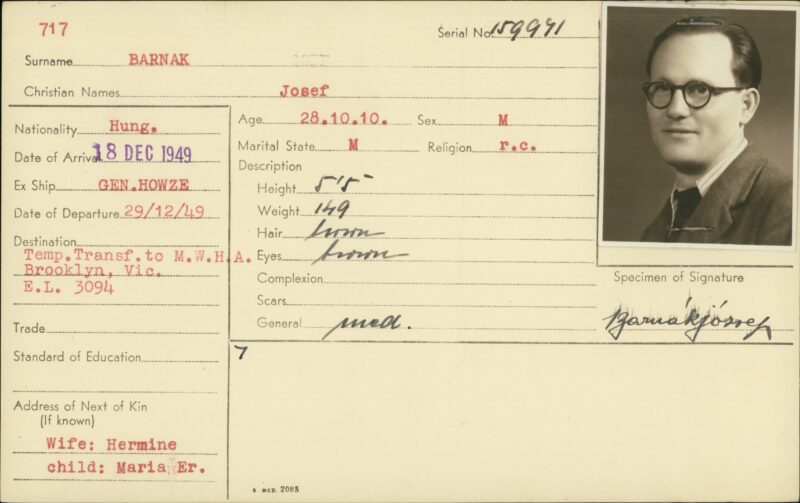 717
Serial No. 159971
Surname BARNAK
Christian Names Josef
Nationality Hung.
Date of Arrival 18 DEC 1949
Ex Ship GEN.HOWZE
Date of Departure 29/12/49
Destination
Temp.Transf.to M.W.H.A.
Brooklyn, Vic.
E.L. 3094
Trade
Standard of Education
Address of Next of Kin
(If known)
Wife: Hermine
child: Maria Er.
Age 28.10.10. Sex M
Marital State M Religion r.c.
Description
Height 5'5"
Weight 149
Hair brown
Eyes brown
Complexion
Scars
General med.
7
Specimen of Signature
Barnák József
S MCD. 2085